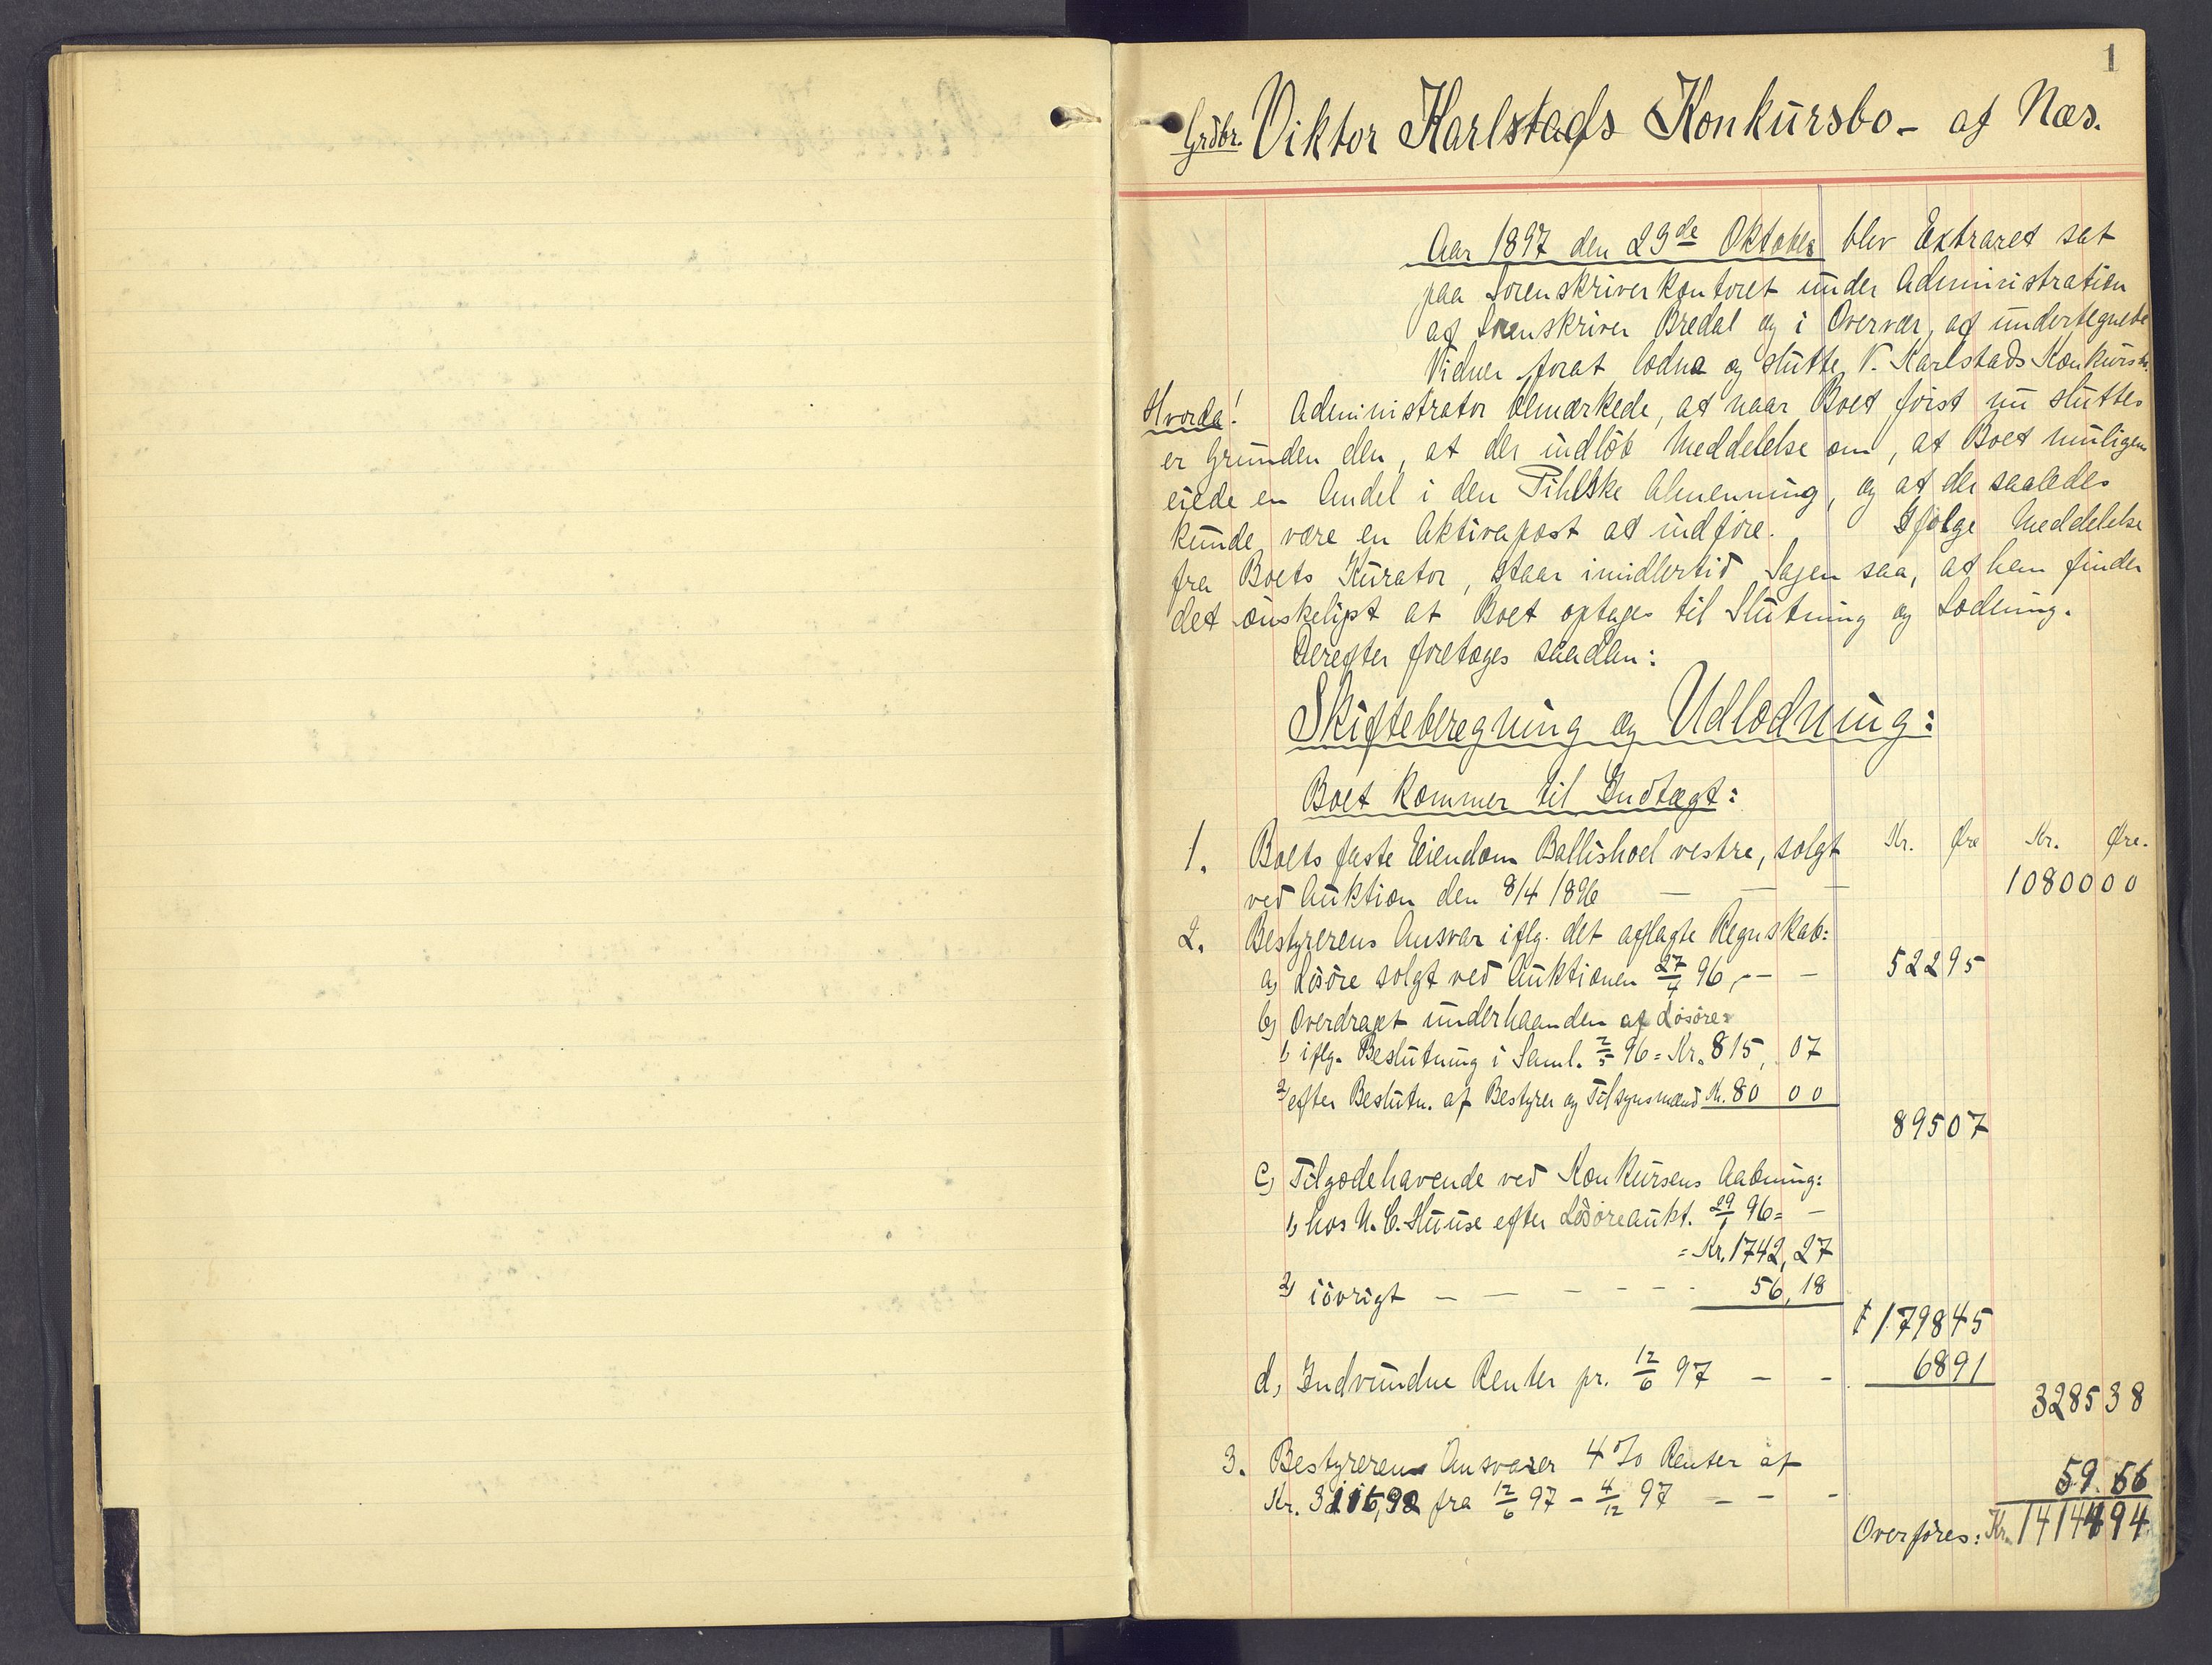 1
Grdbr. Viktor Karlstads Konkursbo - af Næs.
Aar 1897 den 29de Oktober blev Extraret sat
paa Sorenskriverkontoret under Administration
af Sorenskriver Bredal og i Overvær af undertegnede
Vidner forat lodne og slutte V. Karlstads Konkursbo.
Hvorda! Administrator bemærkede, at naar Boet først nu sluttes
er Grunden den, at der indløb Meddelelse om, at Boet muligens
eiede en Andel i den Pihlske Almenning, og at der saaledes
kunde være en Aktivapost at indføre. Ifølge Meddelelse
fra Boets Kurator, staar imidlertid Sagen saa, at han finder
det ønskeligst at Boet optages til Slutning og Lodning.
Derefter foretoges saadan:
Skifteberegning og Udlodning:
Boet kommer til Indtægt:
Kr. Øre Kr. Øre.
1. Boets faste Eiendom Ballishoel vestre, solgt
ved Auktion den 8/4 1896 — — — 10800 00
2. Bestyrerens Ansvar iflg. det aflagte Regnskab:
a, Løsøre solgt ved Auktionen 27/4 96, - - 522 95
b, Overdraget underhaanden af Løsøre:
1, iflg. Beslutning i Saml. 2/5 96 = Kr. 815, 07
2, efter Beslutn. af Bestyrer og Tilsynsmænd Kr. 80 00
895 07
c, Tilgodehavende ved Konkursens Aabning:
1, hos N. C. Huuse efter Løsøreaukt. 29/1 96 = -
= Kr. 1742, 27
2, iøvrigt — — — - - - 56, 18
1798 45
d, Indvundne Renter pr. 12/6 97 - - 68 91
3285 38
3. Bestyreren Ansvarer 4 % Renter af
Kr. 3116,92 fra 12/6 97 - 4/12 97 - - - 59. 56
Overføres: Kr. 14144 94